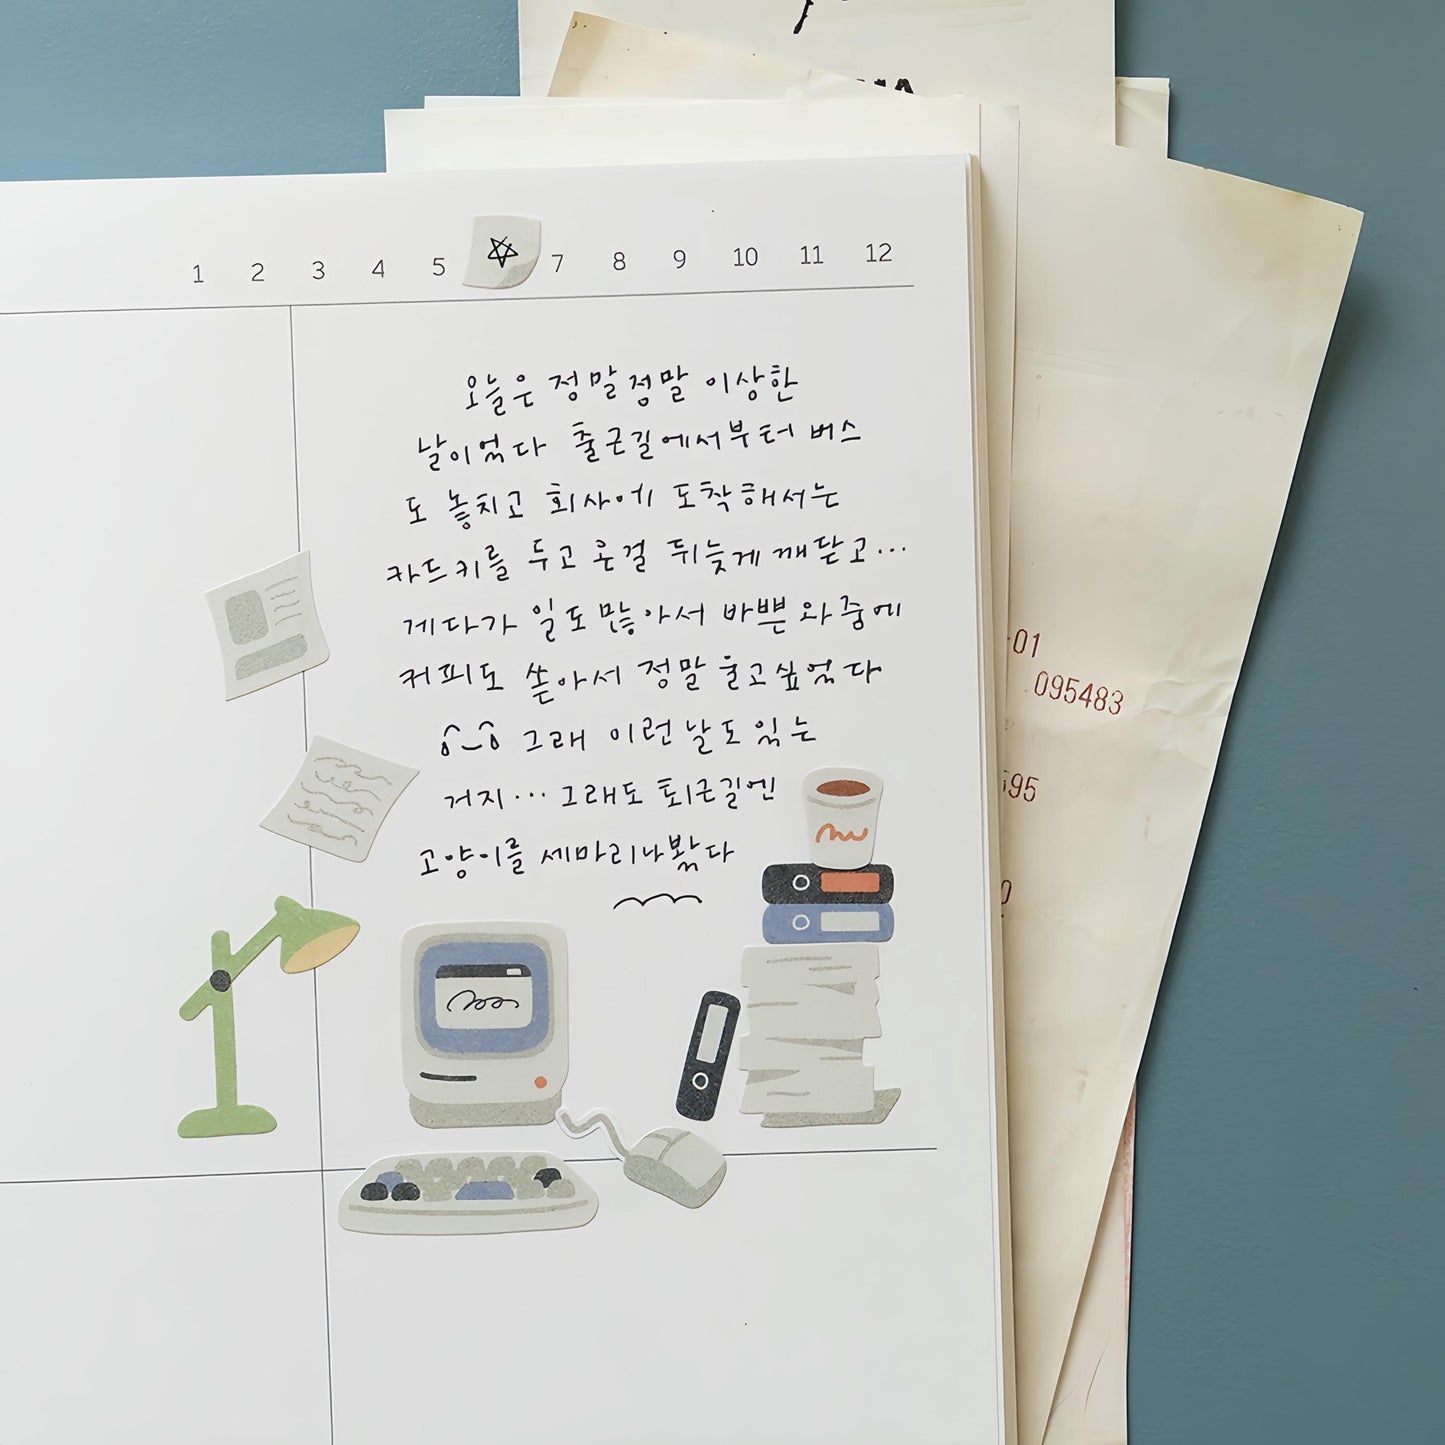 1 2 3 4 5 7 8 9 10 11 12
오늘은 정말정말 이상한
날이었다 출근길에서부터 버스
도 놓치고 회사에 도착해서는
카드키를 두고 온걸 뒤늦게 깨닫고...
게다가 일도 많아서 바쁜 와중에
커피도 쏟아서 정말 울고싶었다
그래 이런날도 있는
거지... 그래도 퇴근길엔
고양이를 세마리나 봤다
-01
095483
595